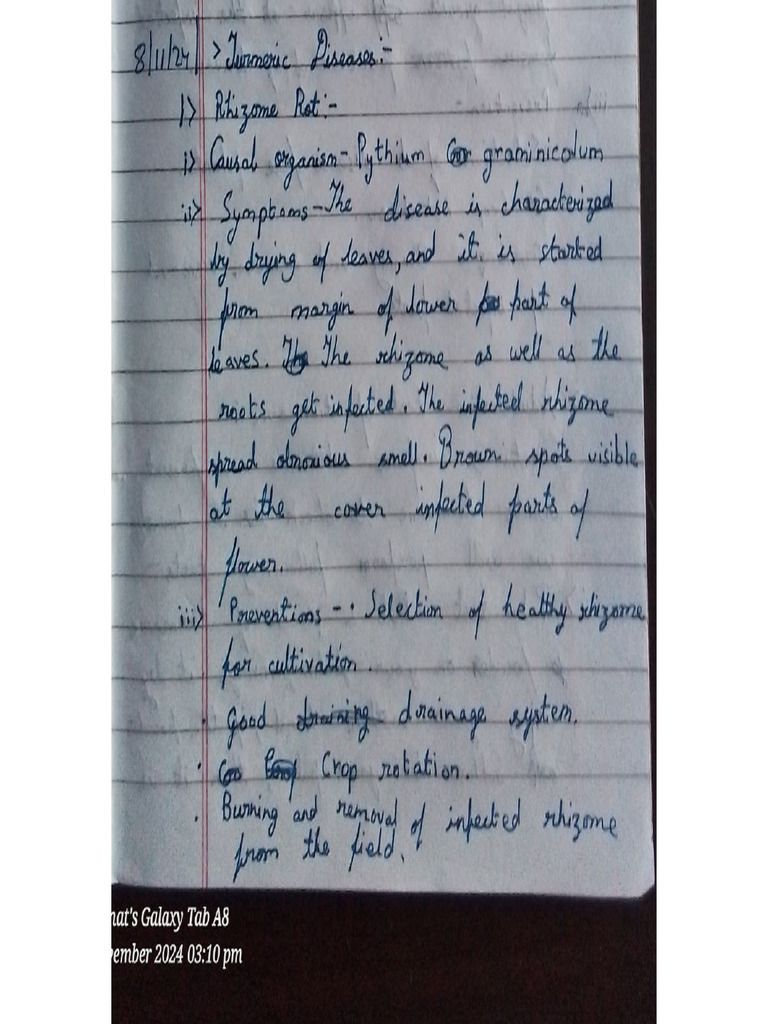 8/11/24 > Turmeric Diseases:-
1> Rhizome Rot:-
i> Causal organism - Pythium graminicolum
ii> Symptoms - The disease is characterized
by drying of leaves, and it is started
from margin of lower part of
leaves. The rhizome as well as the
roots get infected. The infected rhizome
spread obnoxious smell. Brown spots visible
at the cover infected parts of
flower.
iii> Preventions - • Selection of healthy rhizome
for cultivation.
• Good draining drainage system.
• Crop rotation.
• Burning and removal of infected rhizome
from the field.
nat's Galaxy Tab A8
vember 2024 03:10 pm